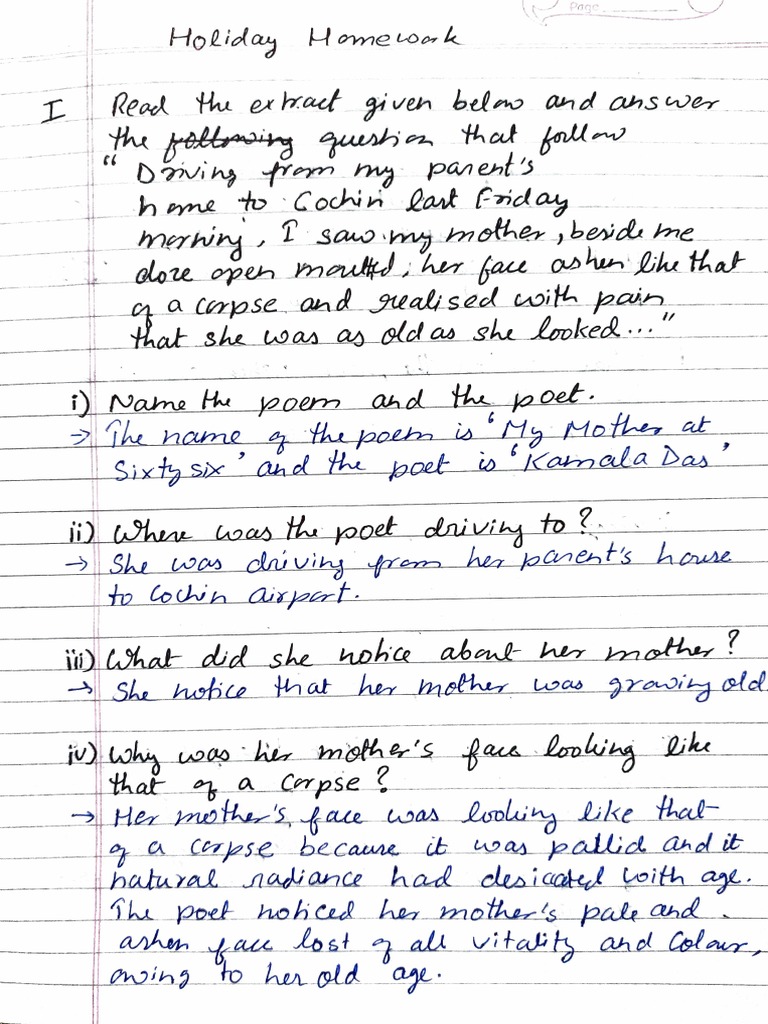 Page
Holiday Homework
I Read the extract given below and answer
the ~~following~~ question that follow
" Driving from my parent's
home to Cochin last Friday
morning, I saw my mother, beside me
doze open mouthed, her face ashen like that
of a corpse and realised with pain
that she was as old as she looked..."
i) Name the poem and the poet.
→ The name of the poem is 'My Mother at
Sixty six' and the poet is 'Kamala Das'
ii) Where was the poet driving to?
→ She was driving from her parent's house
to Cochin airport.
iii) What did she notice about her mother?
→ She notice that her mother was growing old
iv) Why was her mother's face looking like
that of a corpse?
→ Her mother's face was looking like that
of a corpse because it was pallid and it
natural radiance had desiccated with age.
The poet noticed her mother's pale and
ashen face lost of all vitality and colour,
owing to her old age.